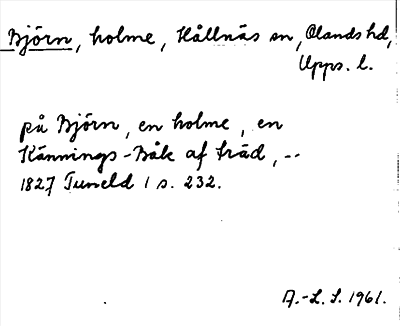 Björn, holme, Hållnäs sn, Olands hd,
Upps. l.
på Björn, en holme, en
Kännings-Båk af träd, --
1827 Tuneld 1 s. 232.
A.-L. S. 1961.